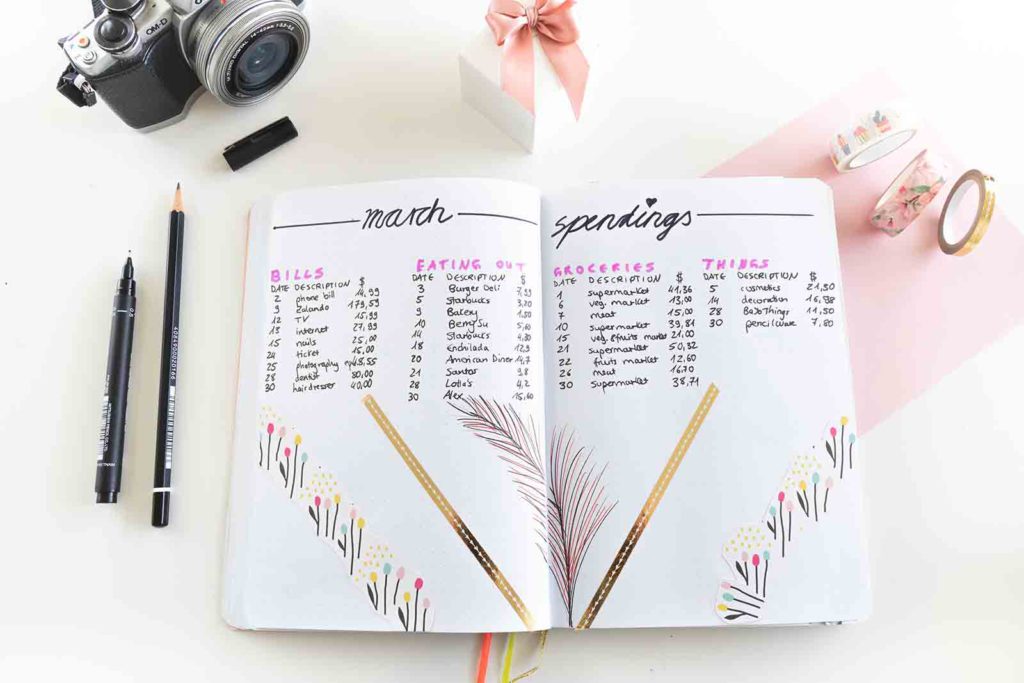 OM-D
DIGITAL 14-42mm 1:3.5-5.6
march
spendings
BILLS
DATE DESCRIPTION $
2 phone bill 14,99
9 Zalando 179,59
12 TV 15,99
13 internet 27,99
15 nails 25,00
24 ticket 15,00
25 photography 48,55
28 dentist 80,00
30 hairdresser 40,00
EATING OUT
DATE DESCRIPTION $
3 Burger Deli 7,99
5 Starbucks 3,20
9 Bakey 1,50
10 BengSu 5,60
14 Starbucks 4,80
18 Enchilada 12,9
20 American Diner 14,7
21 Santos 9,8
28 Lotta's 4,2
30 Alex 15,60
GROCERIES
DATE DESCRIPTION $
1 supermarket 41,36
6 veg. market 13,00
7 meat 15,00
10 supermarket 39,81
15 veg.&fruits market 21,00
21 supermarket 50,32
22 fruits market 12,60
26 meat 16,70
30 supermarket 38,71
THINGS
DATE DESCRIPTION $
5 cosmetics 21,50
14 decoration 16,98
28 BuJoThings 11,50
30 pencilcase 7,80
0.8
VIETNAM